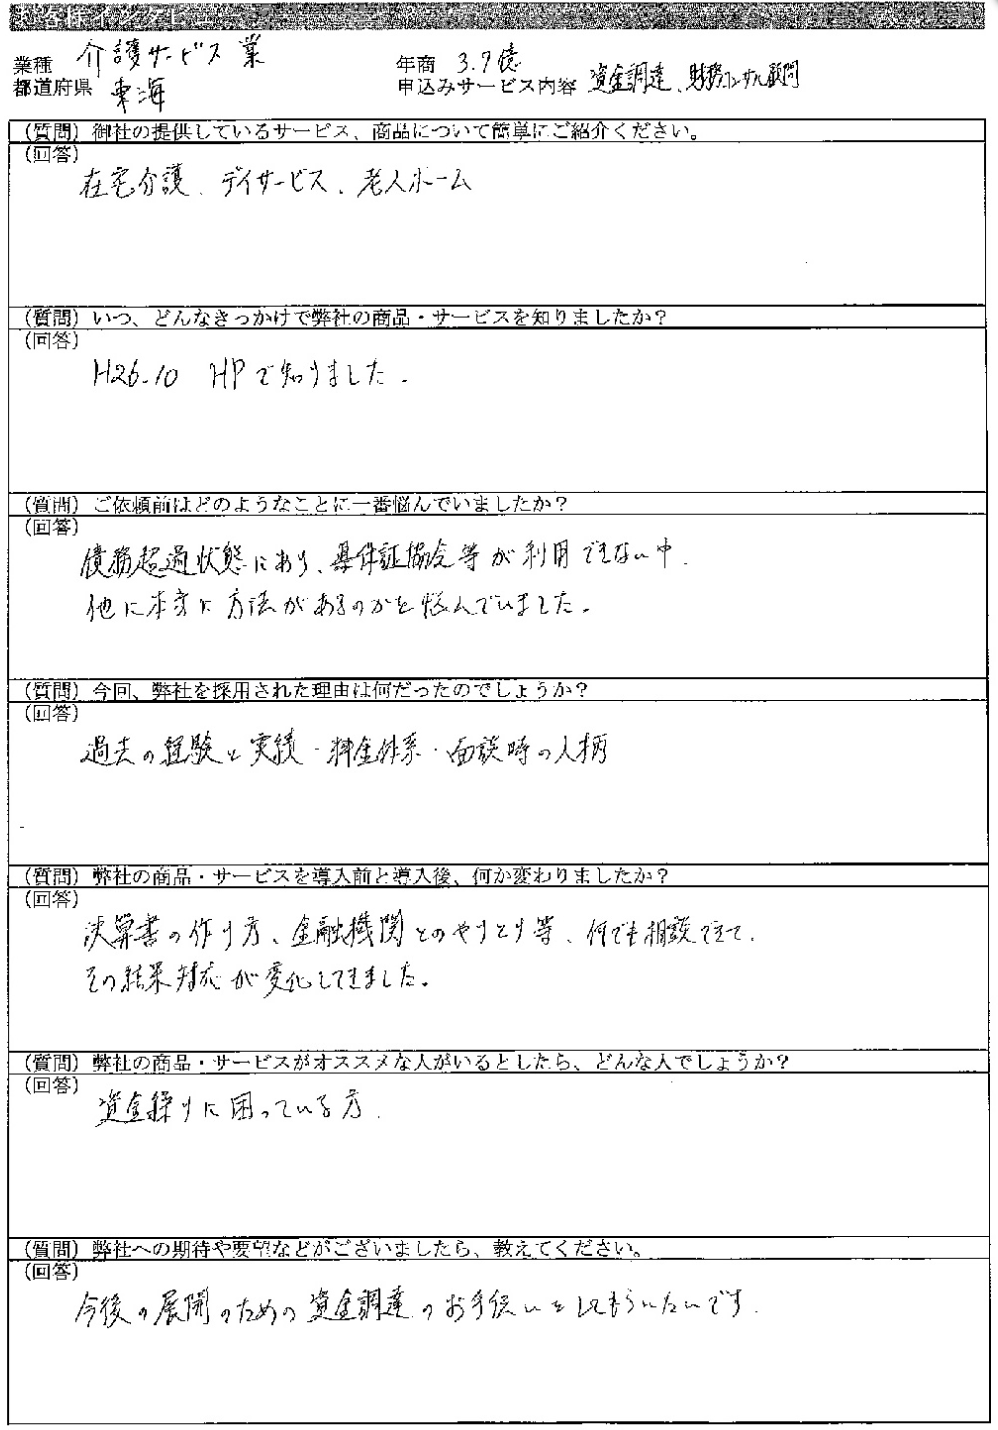 お客様インタビュー
業種 介護サービス業
年商 3.7億
都道府県 東海
申込みサービス内容 資金調達、財務コンサル顧問
(質問)御社の提供しているサービス、商品について簡単にご紹介ください。
(回答)
在宅介護、デイサービス、老人ホーム
(質問)いつ、どんなきっかけで弊社の商品・サービスを知りましたか?
(回答)
H26.10 HPで知りました.
(質問)ご依頼前はどのようなことに一番悩んでいましたか?
(回答)
債務超過状態にあり、県保証協会等が利用できない中.
他に本当に方法があるのかを悩んでいました。
(質問)今回、弊社を採用された理由は何だったのでしょうか?
(回答)
過去の経験と実績・料金体系・面談時の人柄
(質問)弊社の商品・サービスを導入前と導入後、何か変わりましたか?
(回答)
決算書の作り方、金融機関とのやりとり等、何でも相談できて.
その結果対応が変化してきました。
(質問)弊社の商品・サービスがオススメな人がいるとしたら、どんな人でしょうか?
(回答)
資金繰りに困っている方.
(質問)弊社への期待や要望などがございましたら、教えてください。
(回答)
今後の展開のための資金調達のお手伝いをしてもらいたいです.